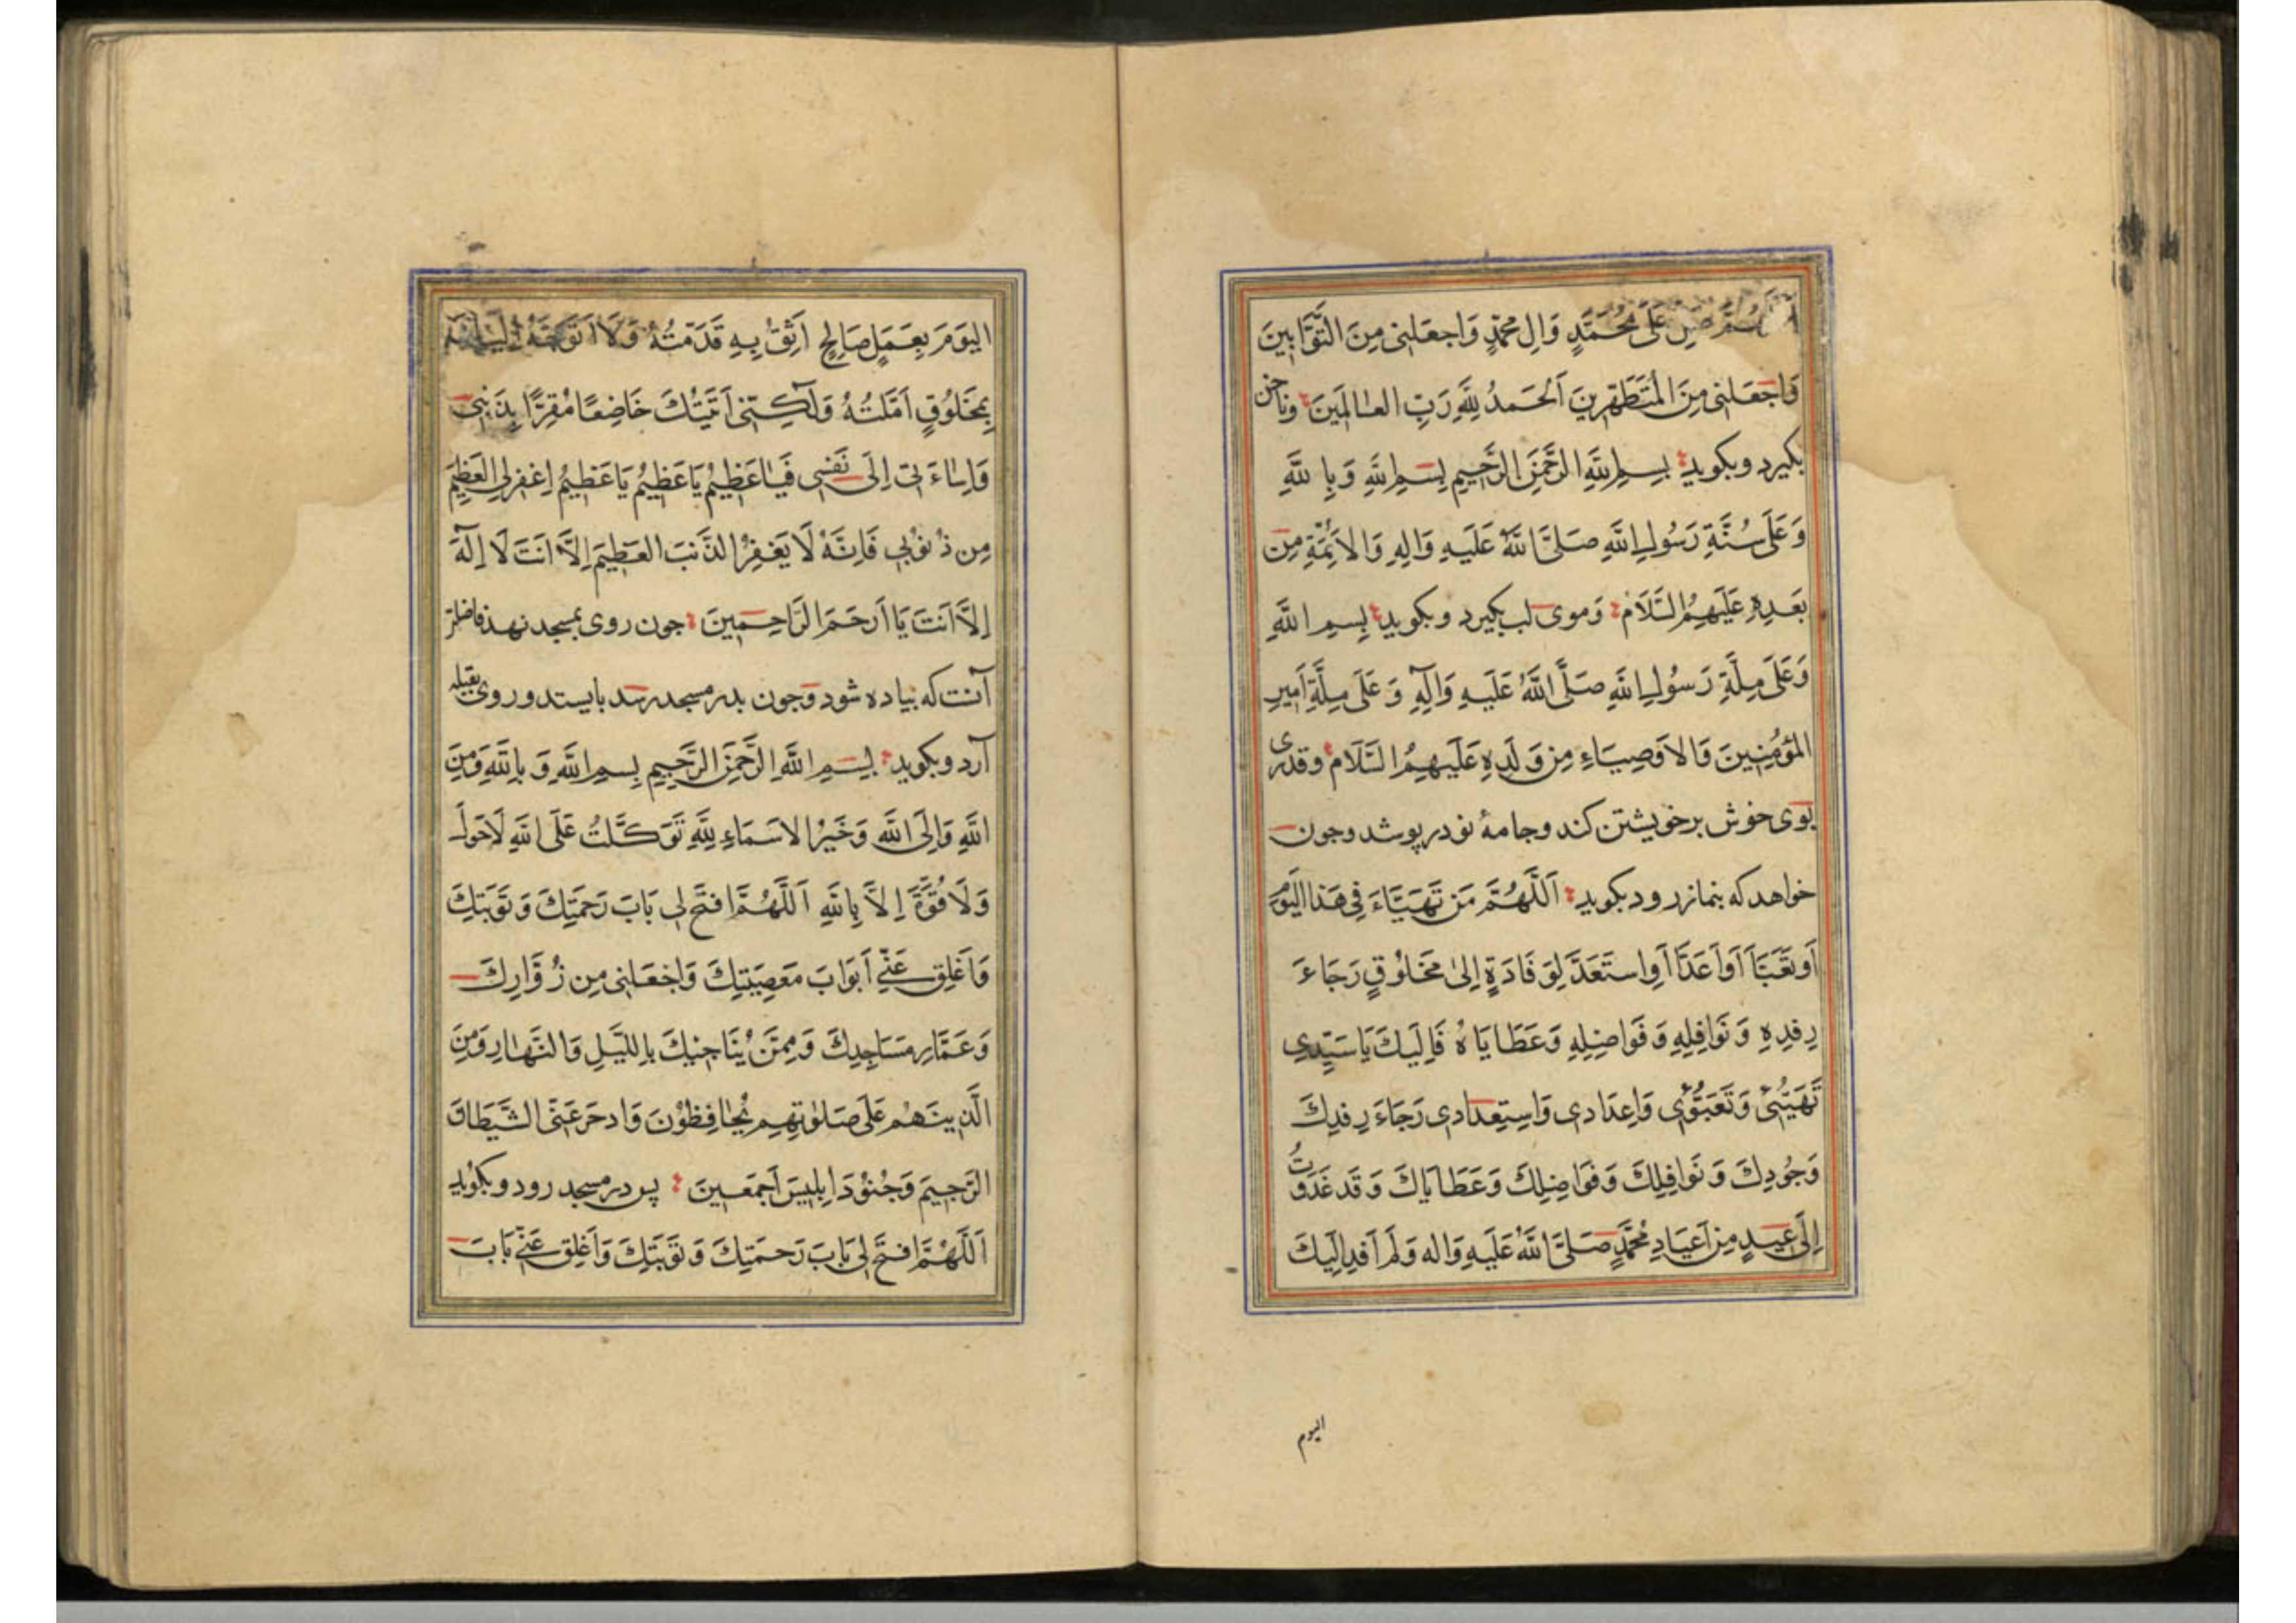 اَللّٰهُمَّ صَلِّ عَلٰى مُحَمَّدٍ وَالِ مُحَمَّدٍ وَاجعَلنِى مِنَ التَّوَّابِينَ
وَاجعَلنِى مِنَ المُتَطَهِّرِينَ اَلحَمدُ لِلّٰهِ رَبِّ العالَمِينَ وناخن
بكيرد وبكويد بِسمِ اللّٰهِ الرَّحمٰنِ الرَّحِيمِ بِسمِ اللّٰهِ وَبِا للّٰهِ
وَعَلٰى سُنَّةِ رَسُولِ اللّٰهِ صَلَّى اللّٰهُ عَلَيهِ وَالِهِ وَالاَئِمَّةِ مِن
بَعدِهِ عَلَيهِمُ السَّلَام وَموى لب بكيرد وبكويد بِسمِ اللّٰهِ
وَعَلٰى مِلَّةِ رَسُولِ اللّٰهِ صَلَّى اللّٰهُ عَلَيهِ وَآلِهِ وَعَلٰى مِلَّةِ اَمِيرِ
المُؤمِنِينَ وَالاَوصِيَاءِ مِن وَلَدِهِ عَلَيهِمُ السَّلَام وقدرى
بوى خوش برخويشتن كند وجامهٔ نو درپوشد وجون
خواهد كه بنماز رود بكويد اَللّٰهُمَّ مَن تَهَيَّاءَ فِى هَذا اليَومِ
اَو تَعَبَّاَ اَو اَعَدَّ اَوِ استَعَدَّ لِوَفَادَةٍ اِلىٰ مَخلُوقٍ رَجَاءَ
رِفدِهِ وَنَوَافِلِهِ وَفَوَاضِلِهِ وَعَطَايَاهُ فَاِلَيكَ يَا سَيِّدِى
تَهَيُّئِى وَتَعَبُّؤِى وَاِعدَادى وَاستِعدَادى رَجَاءَ رِفدِكَ
وَجُودِكَ وَنَوَافِلِكَ وَفَوَاضِلِكَ وَعَطَايَاكَ وَقَد غَدَوتُ
اِلٰى عِيدٍ مِن اَعيَادِ مُحَمَّدٍ صَلَّى اللّٰهُ عَلَيهِ وَاله وَلَم اَفِد اِلَيكَ
اليوم
اليَومَ بِعَمَلٍ صَالِحٍ اَثِقُ بِهِ قَدَّمتُهُ وَلَا اَتَوَجَّهُ اِلَيكَ
بِمَخلُوقٍ اَمَّلتُهُ وَلٰكِنِّى اَتَيتُكَ خَاضِعًا مُقِرًّا بِذَنبِى
وَاِسَاءَتِى اِلٰى نَفسِى فَيَا عَظِيمُ يَا عَظِيمُ يَا عَظِيمُ اِغفِر لِى العَظِيمَ
مِن ذُنُوبِى فَاِنَّهُ لَا يَغفِرُ الذَّنبَ العَظِيمَ اِلَّا اَنتَ لَا اِلٰهَ
اِلَّا اَنتَ يَا اَرحَمَ الرَّاحِمِينَ جون روى بمسجد نهد فاضلتر
آنست كه پياده شود وجون بدر مسجد رسد بايستد وروى بقبله
آرد وبكويد بِسمِ اللّٰهِ الرَّحمٰنِ الرَّحِيمِ بِسمِ اللّٰهِ وَبِاللّٰهِ وَمِنَ
اللّٰهِ وَاِلَى اللّٰهِ وَخَيرُ الاسَمَاءِ لِلّٰهِ تَوَكَّلتُ عَلَى اللّٰهِ لَا حَولَ
وَلَا قُوَّةَ اِلَّا بِاللّٰهِ اَللّٰهُمَّ افتَح لِى بَابَ رَحمَتِكَ وَتَوبَتِكَ
وَاَغلِق عَنِّى اَبوَابَ مَعصِيَتِكَ وَاجعَلنِى مِن زُوَّارِكَ
وَعَمَّارِ مَسَاجِدِكَ وَمِمَّن يُنَاجِيكَ بِاللَّيلِ وَالنَّهَارِ وَمِنَ
الَّذِينَ هُم عَلٰى صَلَوٰتِهِم يُحَافِظُونَ وَادحَر عَنِّى الشَّيطَانَ
الرَّجِيمَ وَجُنُودَ اِبلِيسَ اَجمَعِينَ پس در مسجد رود وبكويد
اَللّٰهُمَّ افتَح لِى بَابَ رَحمَتِكَ وَتَوبَتِكَ وَاَغلِق عَنِّى بَابَ